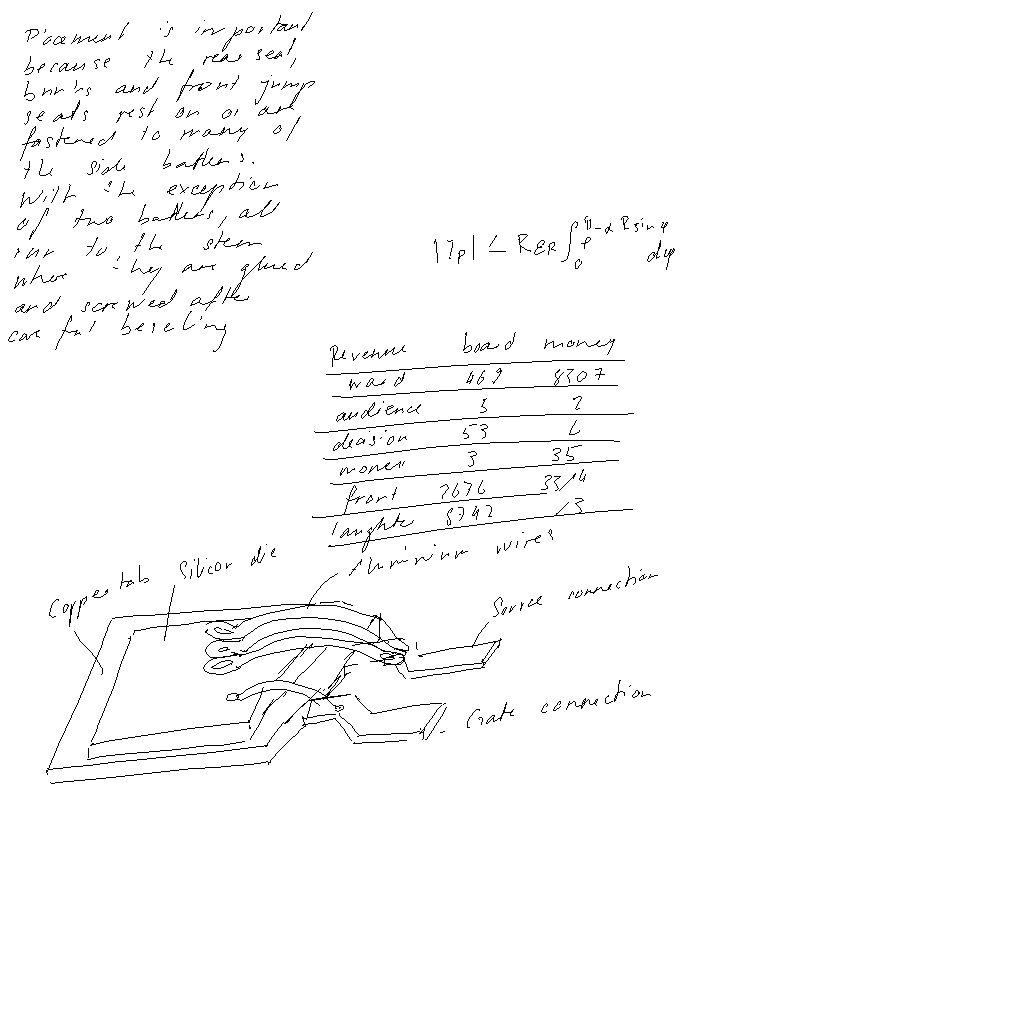 Placement is important
because the rear seat,
bunks and front jump
seats rest on or are
fastened to many of
the side battens.
With the exception
of two battens, all
run to the stem
where they are glued
and screwed after
careful beveling
|Ip| ≤ RεR ∫₀^π e^{-αR sin φ} dφ
Revenue board money
ward 469 8307
audience 5 2
decision 53 6
money 3 35
front 7676
laughter 8742 13
Copper tab Silicon die Aluminium wires
Source connection
Gate connection